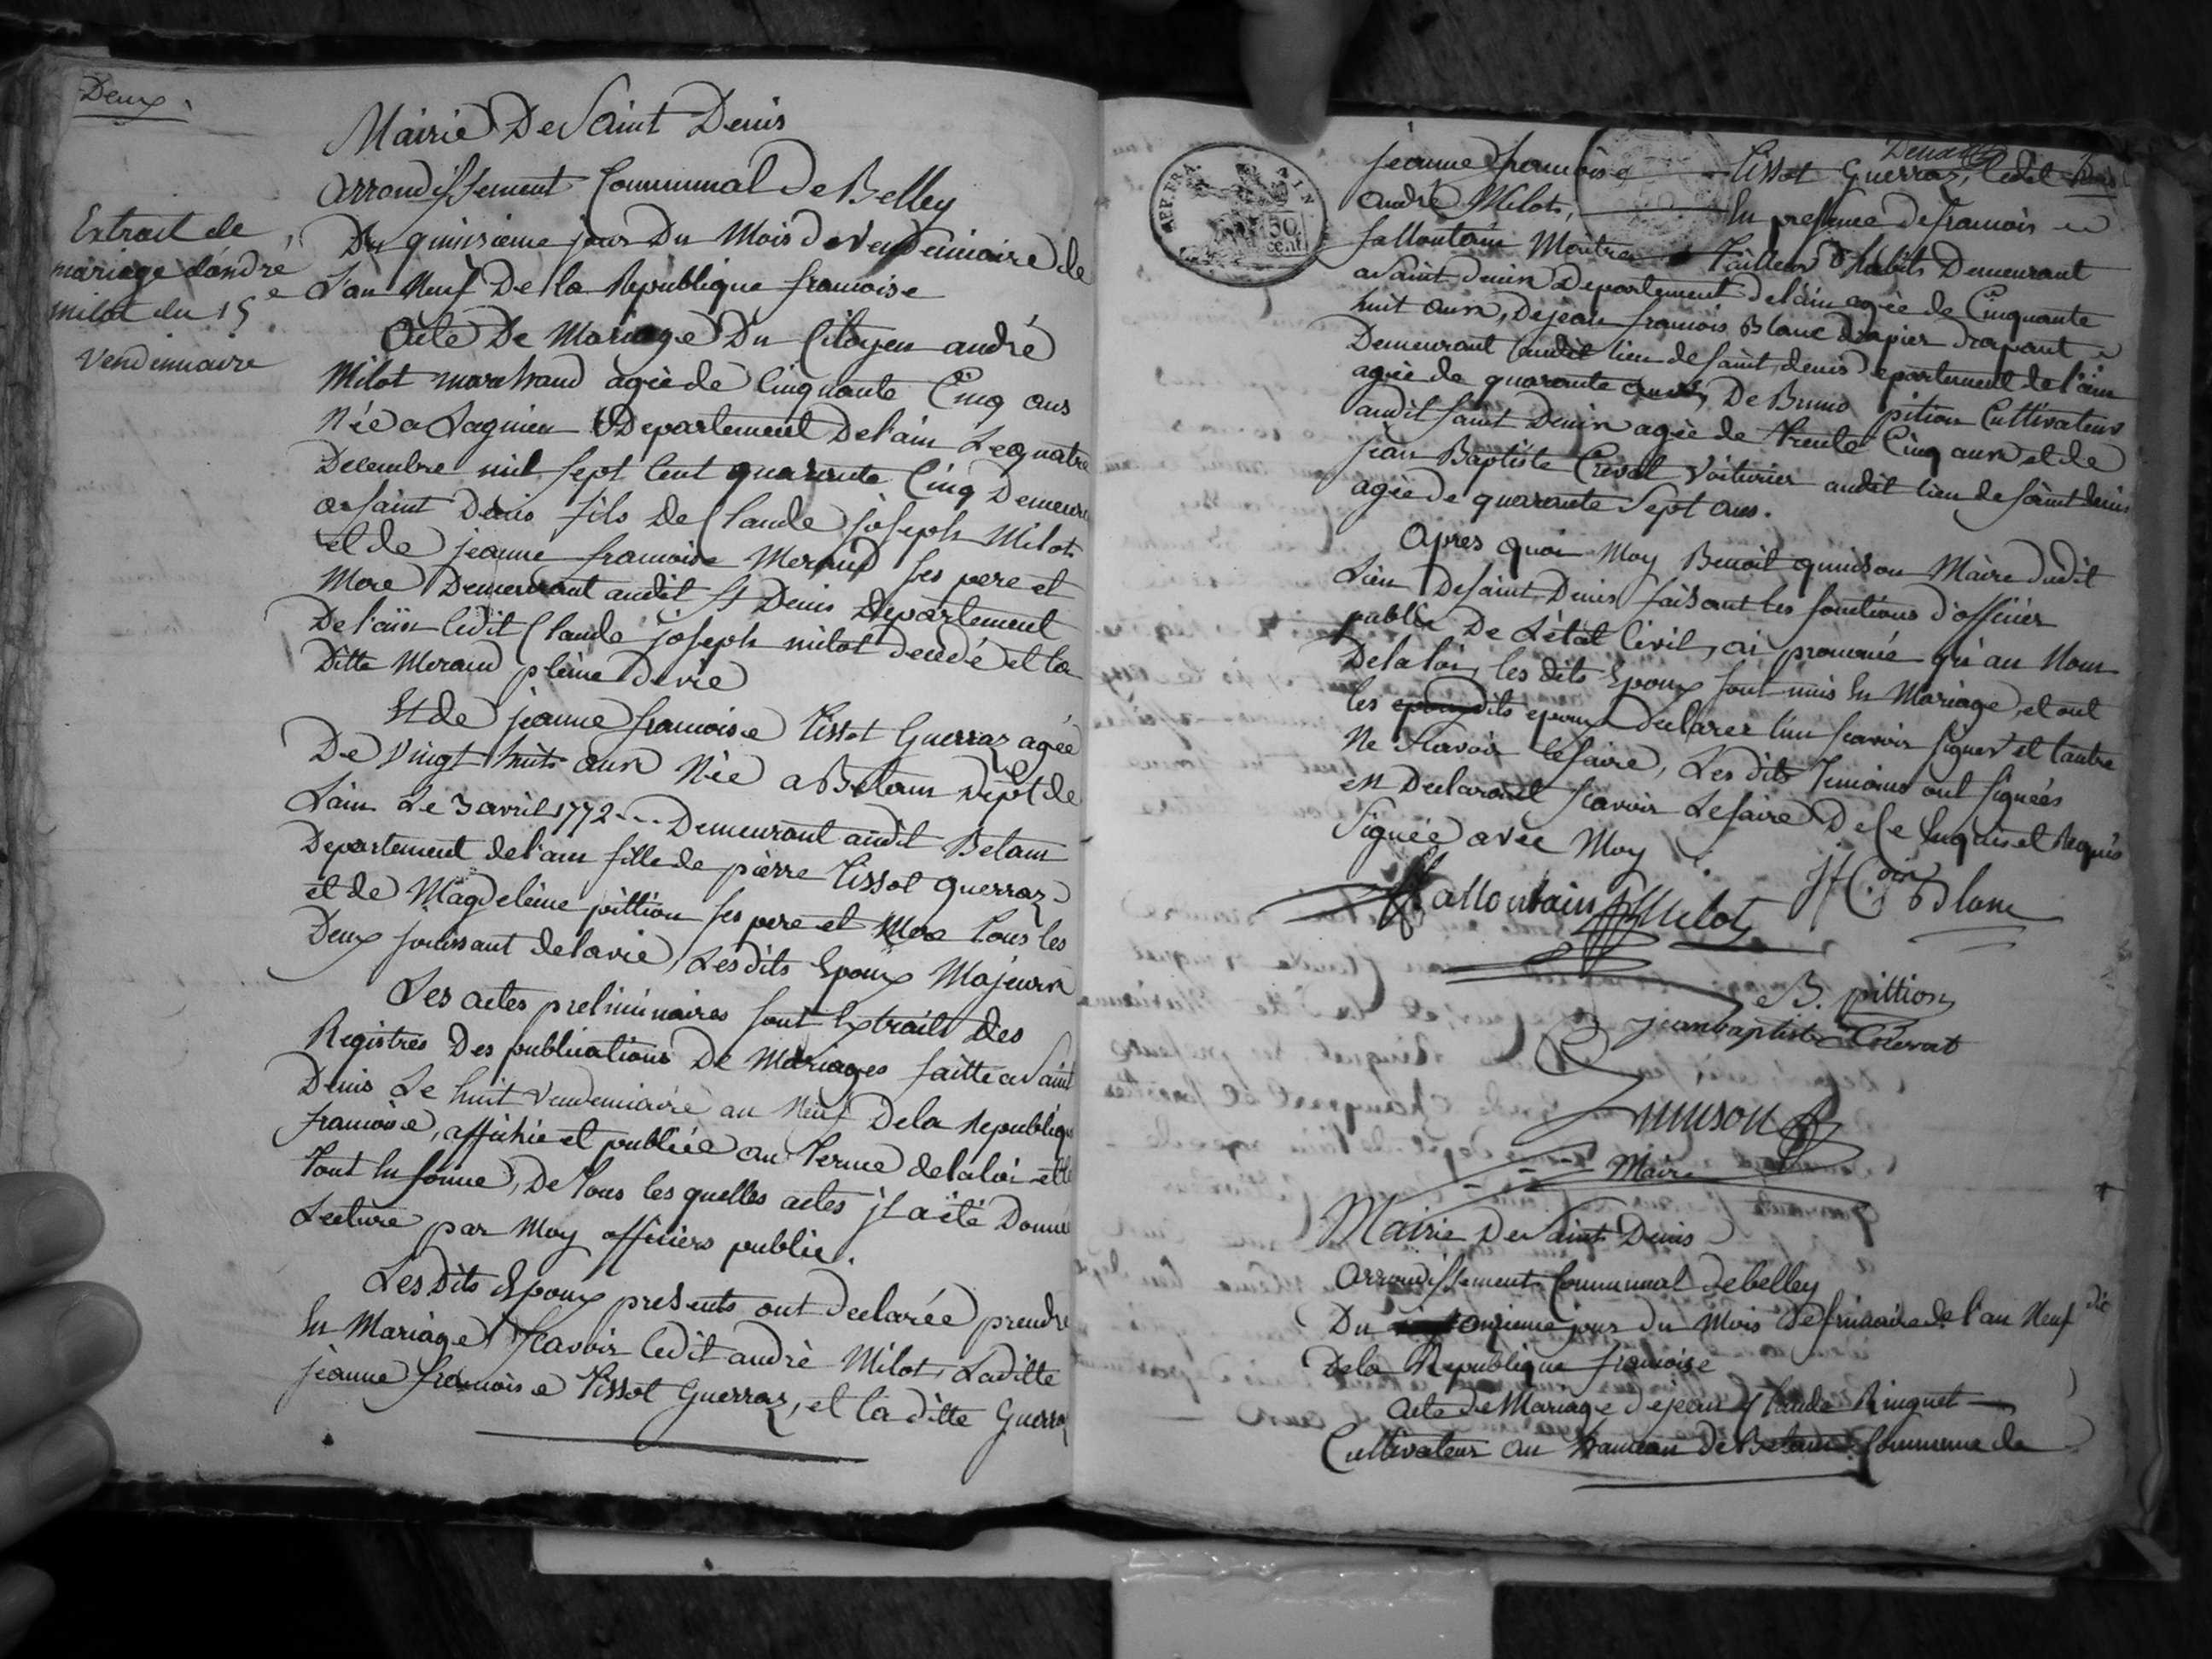 Deux
Extrait de
mariage d'andré
milot du 15e
Vendemiaire
Mairie De Saint Denis
arrondissement Communal de Belley
Du quinzieme jour Du Mois de Vendemiaire de
L'an Neuf De la Republique francoise
Acte De Mariage Du Citoyen andré
Milot marchand agée de Cinquante Cinq ans
Née a Lagnieu Departement De l'ain Le quatre
Decembre mil sept Cent quarante Cinq Demeurant
a saint Denis fils De Claude joseph Milot
et de jeanne francoise Meraud ses pere et
Mere Demeurant audit St Denis departement
De l'ain ledit Claude joseph milot decedé et la
Ditte Meraud pleine de vie
Et de jeanne francoise Tissot Guerraz agée
De Vingt huit ans Née a Betam Dept de
L'ain Le 3 avril 1772 --- Demeurant audit Betam
Departement de l'ain fille de pierre Tissot Guerraz
et de Magdeleine pittion ses pere et Mere tous les
Deux jouissant de la vie, Les dits Epoux Majeurs
Les actes preliminaires sont Extraits des
Registres Des publications De Mariages faitte a Saint
Denis Le huit Vendemiaire an Neuf De la Republique
francoise, affichée et publiée au terme de la loi et le
tout En forme, De tous les quelles actes jl a été Donné
Lecture par Moy officiers public.
Les dits Epoux presents ont declarée prendre
En Mariage Scavoir ledit andré Milot, Laditte
jeanne francoise Tissot Guerraz, et la ditte Guerraz
Deux
jeanne francoise Tissot Guerraz, Ledit
andré Milot, En presence de francois
fallontain Montrer Tailleur d'habits Demeurant
a Saint denis Departement de l'ain agée de Cinquante
huit ans, De jean francois Blanc drapier drapant
Demeurant audit lieu de saint denis departement de l'ain
agée de quarante ans, De Bruno pition Cultivateur
audit saint Denis agée de trente Cinq ans et de
jean Baptiste Crevat Voiturier audit lieu de saint denis
agée de quarante Sept ans.
apres quoi Moy Benoit quinson Maire dudit
Lieu De saint Denis faisant les fonctions d'officier
public De L'état Civil, ai prononcé qu'au Nom
De la loi, les dits Epoux sont unis En Mariage, et ont
les dits epoux declarer l'un scavoir signer et l'autre
Ne Scavoir le faire, Les dits temoins ont signées
en Declarant scavoir Le faire De Ce Enquis et Requis
Signée avec Moy
fallontain Milot Jf Cois Blanc
B. pittion
jean baptiste Crevat
Quinson
Maire
Mairie De Saint Denis
arrondissement Communal de belley
Du onzieme jour du Mois De frimaire de l'an Neuf
De la Republique francoise
acte de Mariage de jean Claude Ringuet
Cultivateur au hameau de Betam Commune de
REP. FRA.
AIN
50
cent.